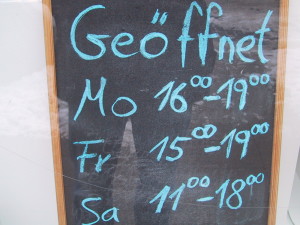 Geöffnet
Mo 16⁰⁰-19⁰⁰
Fr 15⁰⁰-19⁰⁰
Sa 11⁰⁰-18⁰⁰